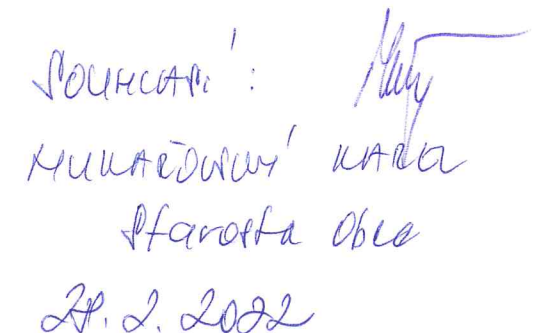 Souhlasí:
Mukařovský Karel
Starosta Obce
28. 2. 2022